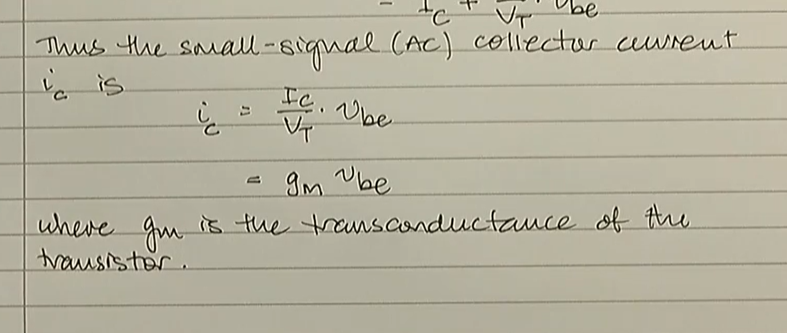 = I_C + I_C/V_T · v_be
Thus the small-signal (AC) collector current
i_c is
i_c = I_C/V_T · v_be
= g_m v_be
where gm is the transconductance of the
transistor.